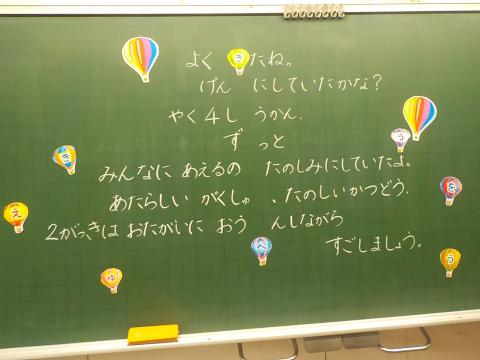 よくきたね。
げん にしていたかな?
やく4し うかん.
ず っと
う
き
みんなに あえるの たのしみにしていたよ。
を
あたらしい がくしゅ 、たのしいかつどう.
え
2がっきは おたがいに おう んしながら
へ
う
すごしましょう。
ゅ